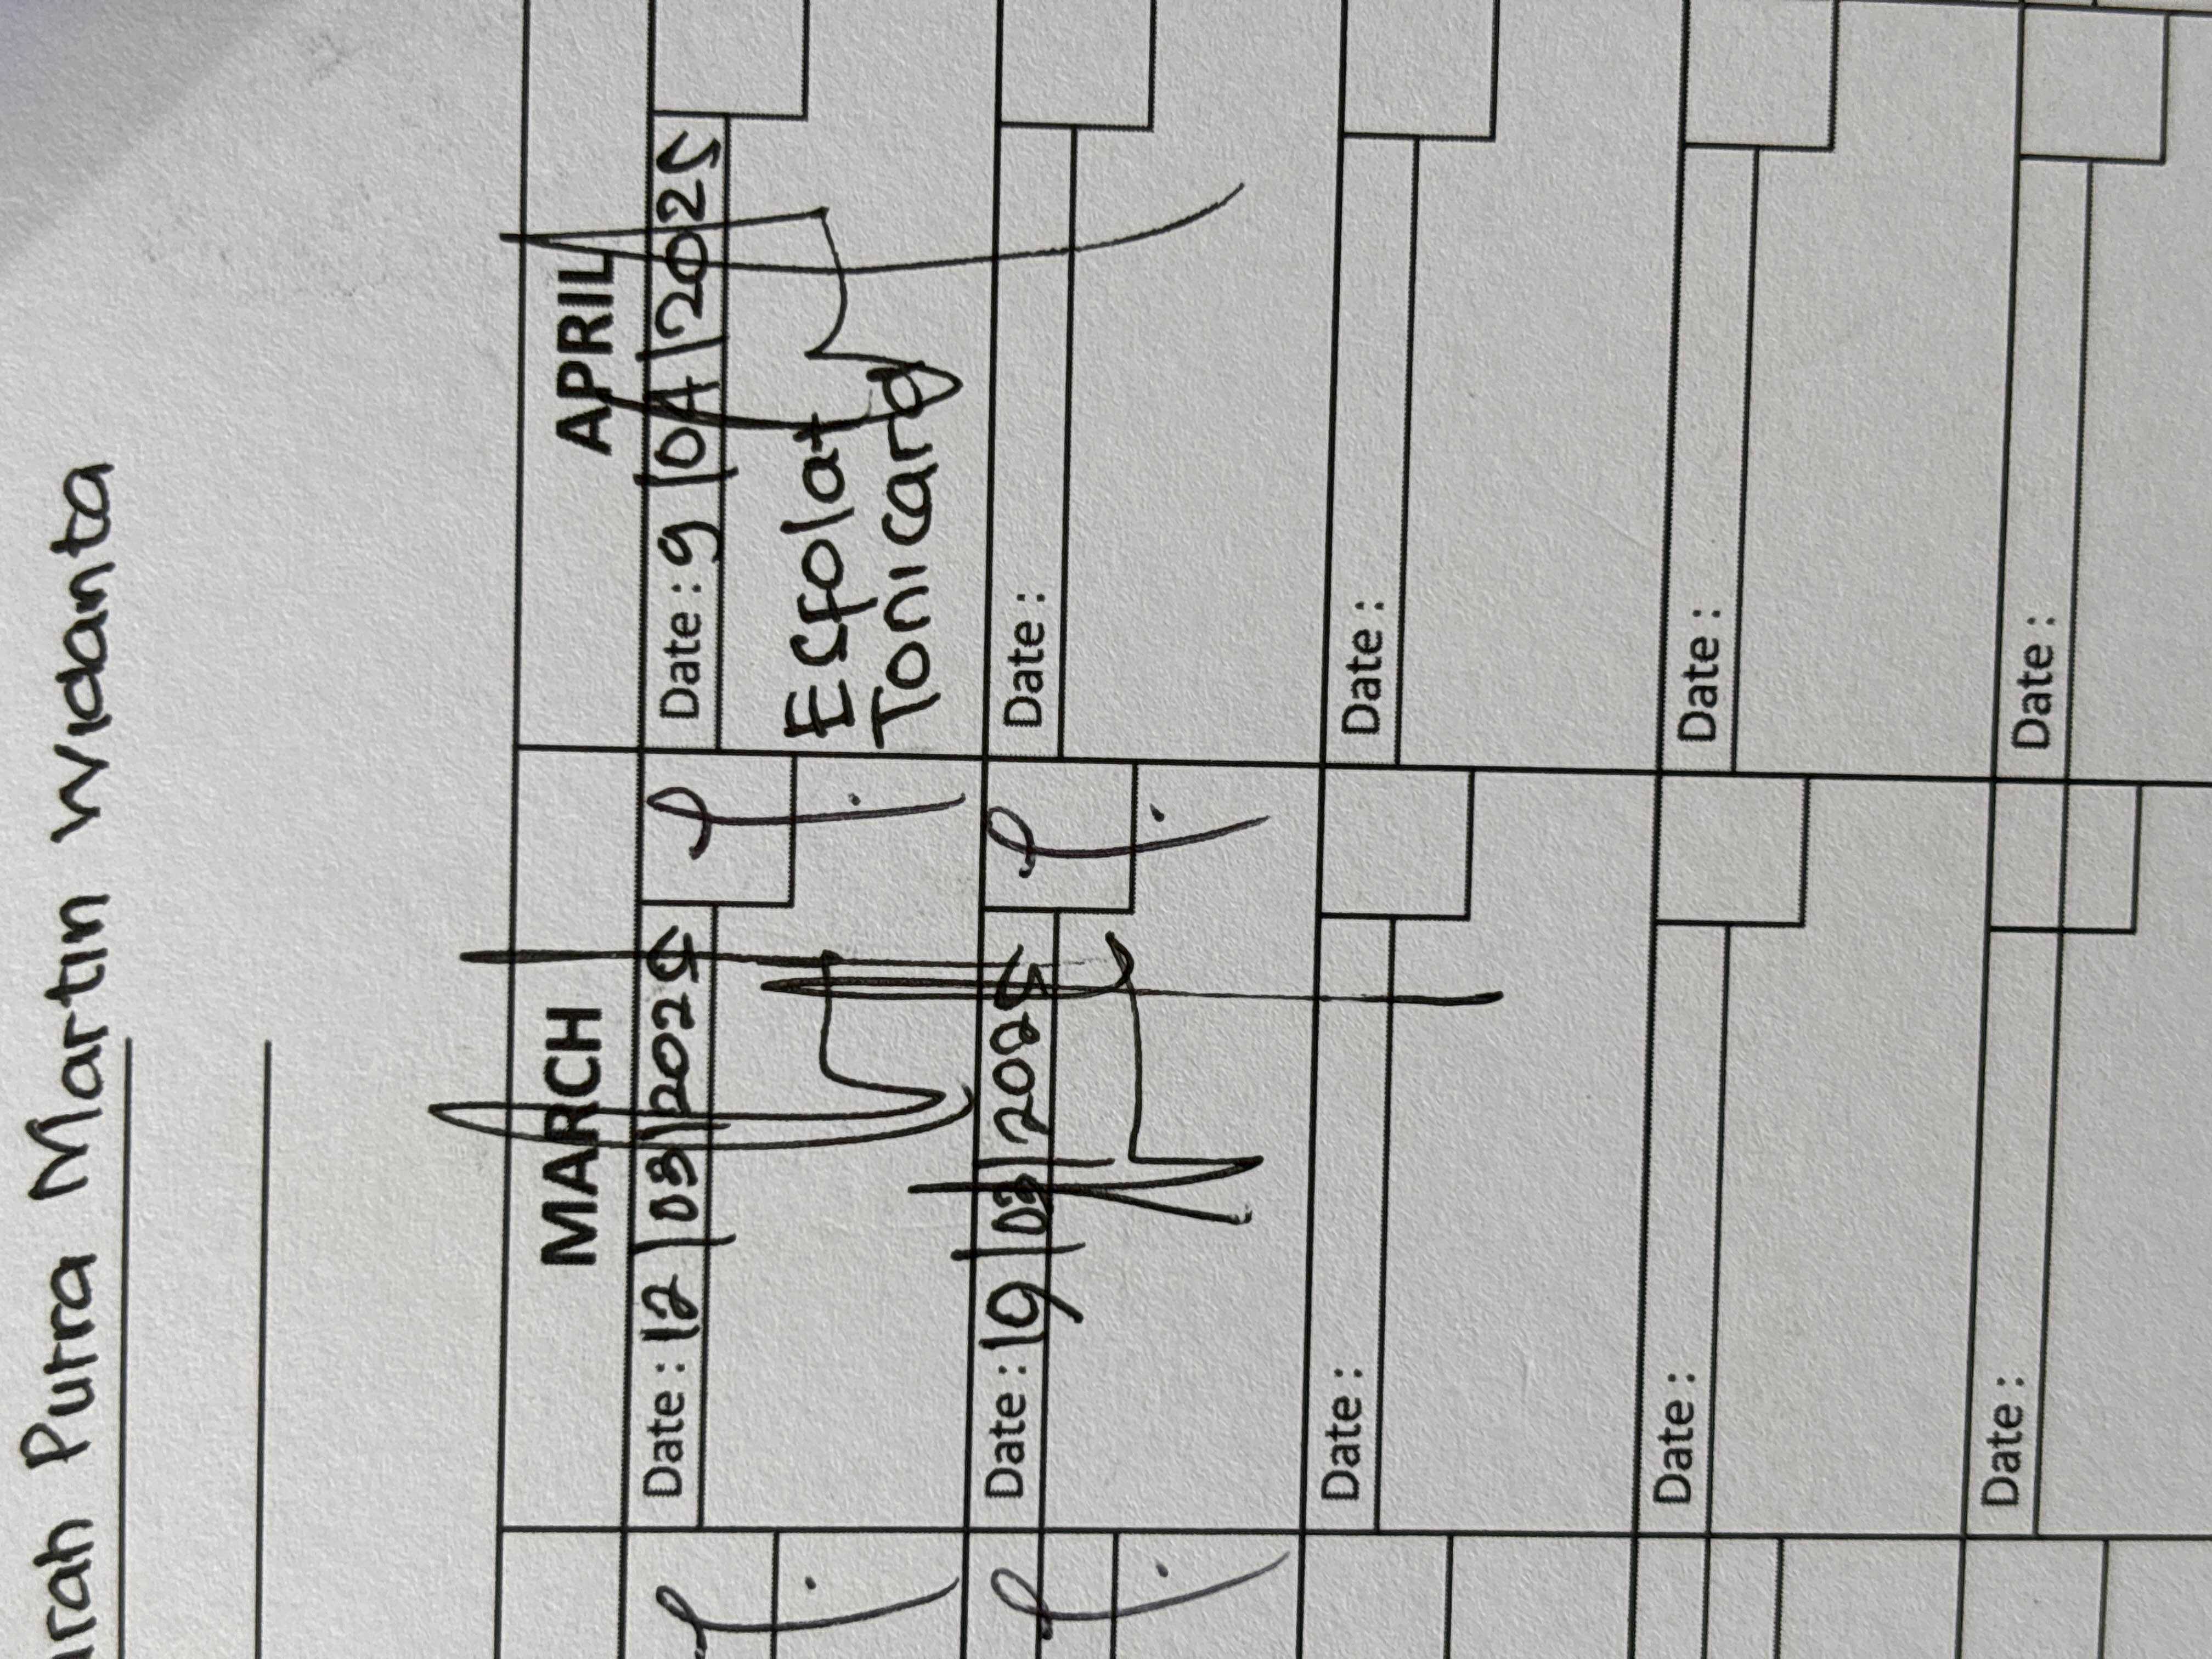 Putra Martin Widanta
MARCH APRIL
Date : 12/03/2025 Date : 9/04/2025
Esfolat
Tonicard
Date : 19/03/2025 Date :
Date : Date :
Date : Date :
Date : Date :